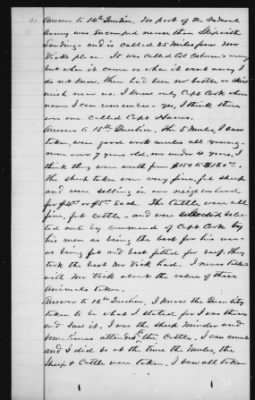 Answer to 14th Question, No part of the Federal
Army was encamped nearer than Skipwith
Landing and is called 25 miles from Mr
Dicks place. It was called Col Osborn's army
but when it came or when it went away I
do not know, there had been no battle or skir
mish near us. I knew only Capt Cook whose
name I can remember yes, I think there
was one called Capt Harris.
Answer to 15th Question, The 5 mules, I saw
taken, were good work mules all young,
none over 7 years old, nor under 4 years, I
think they were worth from $150 to $180.
The sheep taken were very fine, fat sheep
and were selling in our neighborhood
for $4 or $5 Each. The Cattle were all
fine, fat cattle, and were selected selec
ted out by command of Capt Cook by
his men as being the best for his use
as being fat and best fatted for beef, they
took the best Mr Dick had. I never talked
with Mr Dick about the value of these
Animals taken.
Answer to 16th Question, I know the Quantity
taken to be what I stated for I was there
and saw it, I was the sheep minder and
some times attended the Cattle, I can count
and I did so at the time the mules, the
Sheep & Cattle were taken, I saw all taken